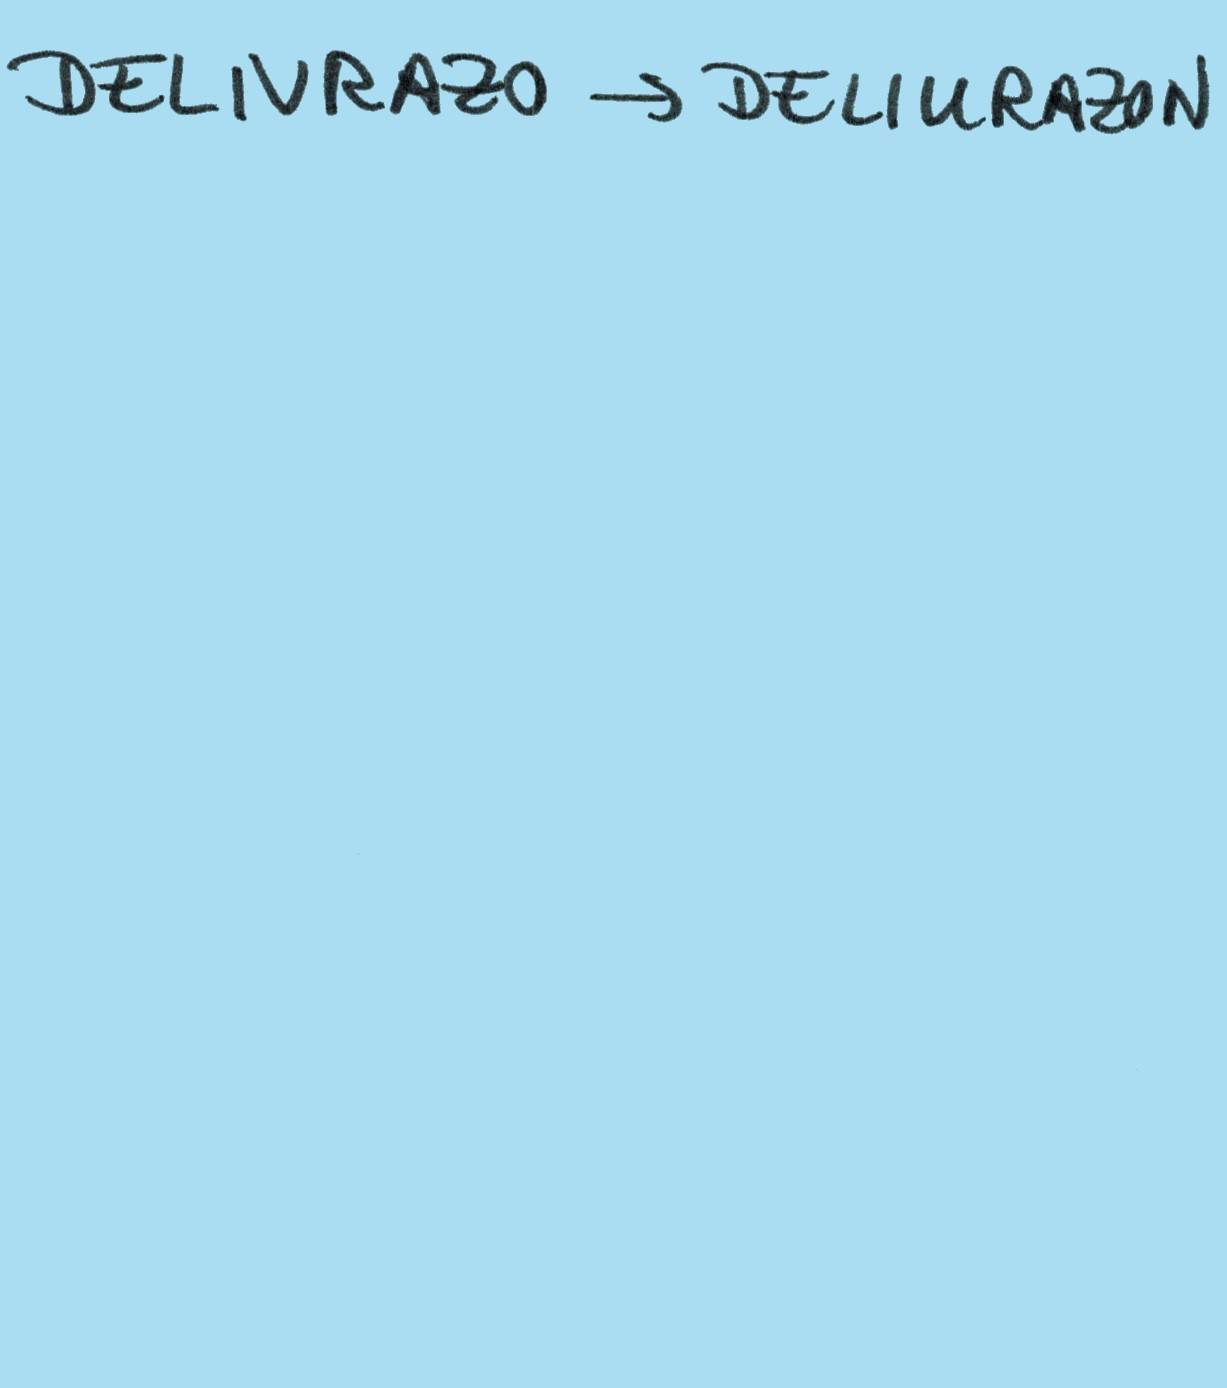 DELIVRAZO → DELIURAZON